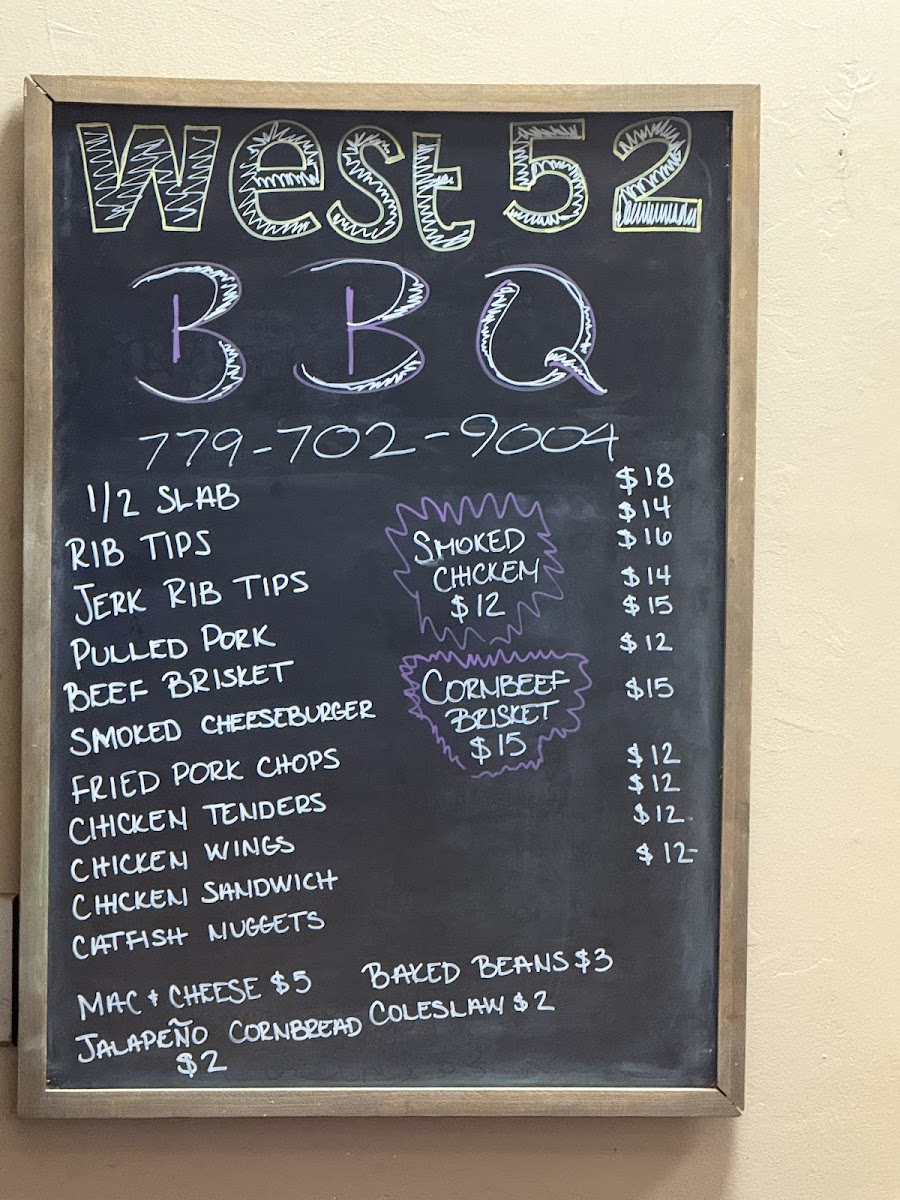 West 52
BBQ
779-702-9004
1/2 SLAB $18
RIB TIPS $14
JERK RIB TIPS $16
PULLED PORK $14
BEEF BRISKET $15
SMOKED CHEESEBURGER $12
FRIED PORK CHOPS $15
CHICKEN TENDERS $12
CHICKEN WINGS $12
CHICKEN SANDWICH $12
CATFISH NUGGETS $12
SMOKED
CHICKEN
$12
CORNBEEF
BRISKET
$15
MAC + CHEESE $5
BAKED BEANS $3
JALAPEÑO CORNBREAD
$2
COLESLAW $2